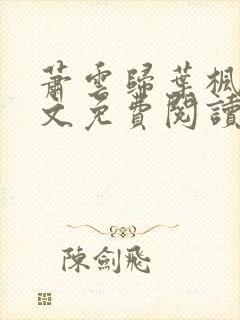 蕭雲歸葉楓
文免費閱讀
陳劍飛